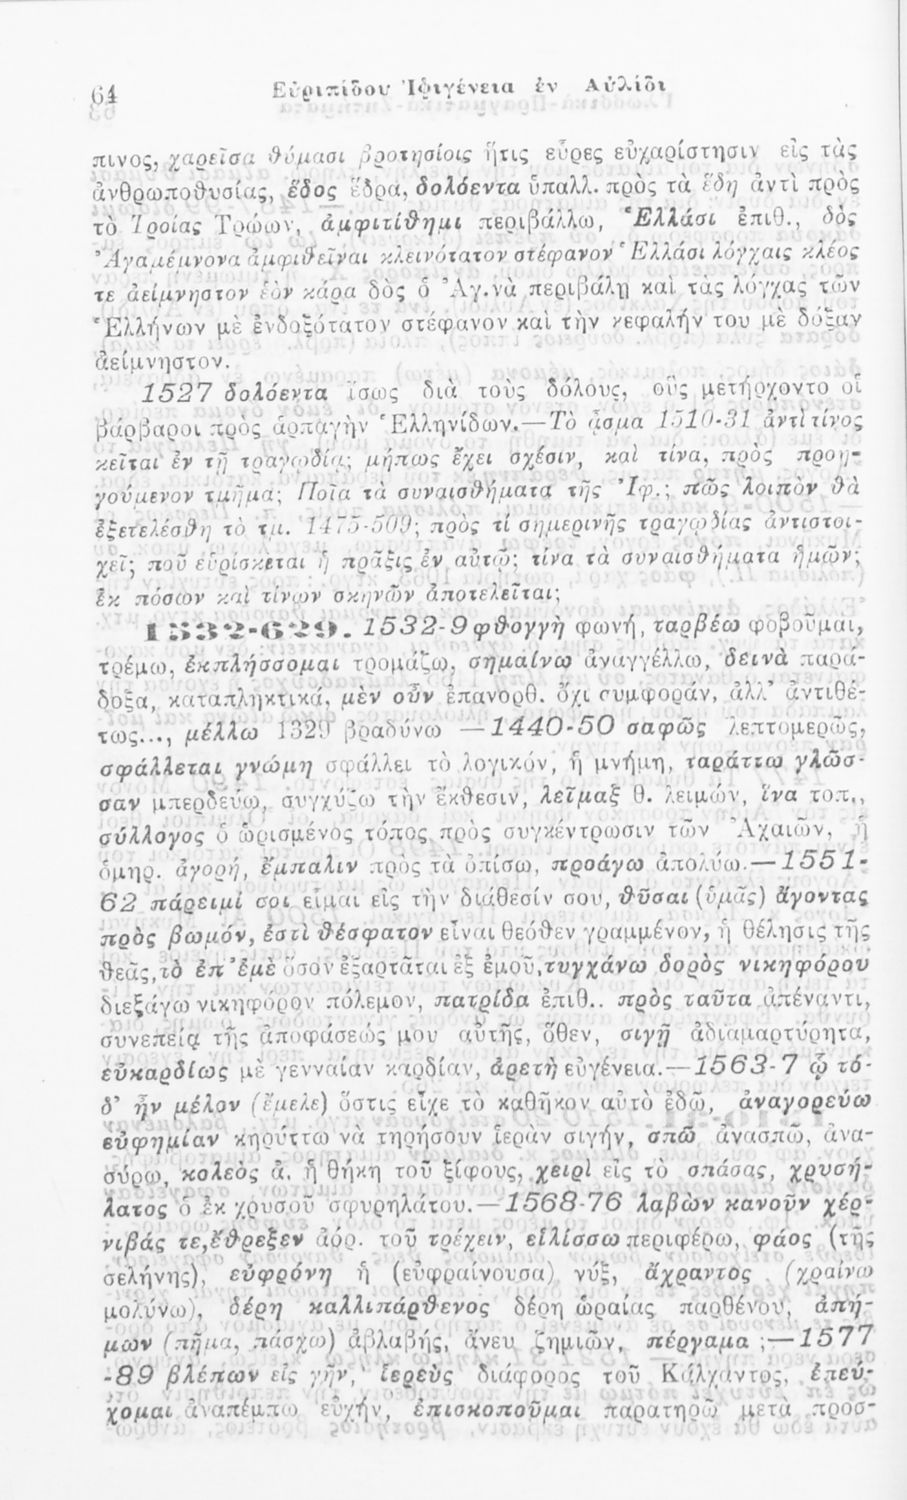 64
Εὐριπίδου Ἰφιγένεια ἐν Αὐλίδι
πινος, χαρεῖσα θύμασι βροτησίοις ἥτις εὗρες εὐχαρίστησιν εἰς τὰς
ἀνθρωποθυσίας, ἕδος ἕδρα, δολόεντα ὑπαλλ. πρὸς τὰ ἕδη ἀντὶ πρὸς
τὸ Τροίας Τρώων, ἀμφιτίθημι περιβάλλω, Ἑλλάσι ἐπιθ., δὸς
Ἀγαμέμνονα ἀμφιθεῖναι κλεινότατον στέφανον Ἑλλάσι λόγχαις κλέος
τε ἀείμνηστον ἑὸν κάρα δὸς ὁ Ἀγ. νὰ περιβάλῃ καὶ τὰς λόγχας τῶν
Ἑλλήνων μὲ ἐνδοξότατον στέφανον καὶ τὴν κεφαλήν του μὲ δόξαν
ἀείμνηστον.
1527 δολόεντα ἴσως διὰ τοὺς δόλους, οὓς μετήρχοντο οἱ
βάρβαροι πρὸς ἁρπαγὴν Ἑλληνίδων.—Τὸ ᾆσμα 1510-31 ἀντὶ τίνος
κεῖται ἐν τῇ τραγῳδίᾳ; μήπως ἔχει σχέσιν, καὶ τίνα, πρὸς προη-
γούμενον τμῆμα; Ποῖα τὰ συναισθήματα τῆς Ἰφ.; πῶς λοιπὸν θὰ
ἐξετελέσθη τὸ τμ. 1475-509; πρὸς τί σημερινῆς τραγῳδίας ἀντιστοι-
χεῖ; ποῦ εὑρίσκεται ἡ πρᾶξις ἐν αὐτῷ; τίνα τὰ συναισθήματα ἡμῶν;
ἐκ πόσων καὶ τίνων σκηνῶν ἀποτελεῖται;
1532-629. 1532-9 φθογγὴ φωνή, ταρβέω φοβοῦμαι,
τρέμω, ἐκπλήσσομαι τρομάζω, σημαίνω ἀναγγέλλω, δεινὰ παρά-
δοξα, καταπληκτικά, μὲν οὖν ἐπανορθ. ὄχι συμφοράν, ἀλλ' ἀντιθέ-
τως..., μέλλω 1329 βραδύνω —1440-50 σαφῶς λεπτομερῶς,
σφάλλεται γνώμη σφάλλει τὸ λογικόν, ἡ μνήμη, ταράττω γλῶσ-
σαν μπερδεύω, συγχύζω τὴν ἔκθεσιν, λεῖμαξ θ. λειμών, ἵνα τοπ.,
σύλλογος ὁ ὡρισμένος τόπος πρὸς συγκέντρωσιν τῶν Ἀχαιῶν, ἡ
ὁμηρ. ἀγορή, ἔμπαλιν πρὸς τὰ ὀπίσω, προάγω ἀπολύω.—1551-
62 πάρειμί σοι εἶμαι εἰς τὴν διάθεσίν σου, θῦσαι (ὑμᾶς) ἄγοντας
πρὸς βωμόν, ἐστὶ θέσφατον εἶναι θεόθεν γραμμένον, ἡ θέλησις τῆς
θεᾶς, τὸ ἐπ' ἐμὲ ὅσον ἐξαρτᾶται ἐξ ἐμοῦ, τυγχάνω δορὸς νικηφόρου
διεξάγω νικηφόρον πόλεμον, πατρίδα ἐπιθ.. πρὸς ταῦτα ἀπέναντι,
συνεπείᾳ τῆς ἀποφάσεώς μου αὐτῆς, ὅθεν, σιγῇ ἀδιαμαρτύρητα,
εὐκαρδίως μὲ γενναίαν καρδίαν, ἀρετὴ εὐγένεια.—1563-7 ᾧ τό-
δ' ἦν μέλον (ἔμελε) ὅστις εἶχε τὸ καθῆκον αὐτὸ ἐδῶ, ἀναγορεύω
εὐφημίαν κηρύττω νὰ τηρήσουν ἱερὰν σιγήν, σπῶ ἀνασπῶ, ἀνα-
σύρω, κολεὸς ἀ. ἡ θήκη τοῦ ξίφους, χειρὶ εἰς τὸ σπάσας, χρυσή-
λατος ὁ ἐκ χρυσοῦ σφυρηλάτου.—1568-76 λαβὼν κανοῦν χέρ-
νιβάς τε, ἔθρεξεν ἀόρ. τοῦ τρέχειν, εἱλίσσω περιφέρω, φάος (τῆς
σελήνης), εὐφρόνη ἡ (εὐφραίνουσα) νύξ, ἄχραντος (χραίνω
μολύνω), δέρη καλλιπάρθενος δέρη ὡραίας παρθένου, ἀπή-
μων (πῆμα, πάσχω) ἀβλαβής, ἄνευ ζημιῶν, πέργαμα ;—1577
-89 βλέπων εἰς γῆν, ἱερεὺς διάφορος τοῦ Κάλχαντος, ἐπεύ-
χομαι ἀναπέμπω εὐχήν, ἐπισκοποῦμαι παρατηρῶ μετὰ προσ-